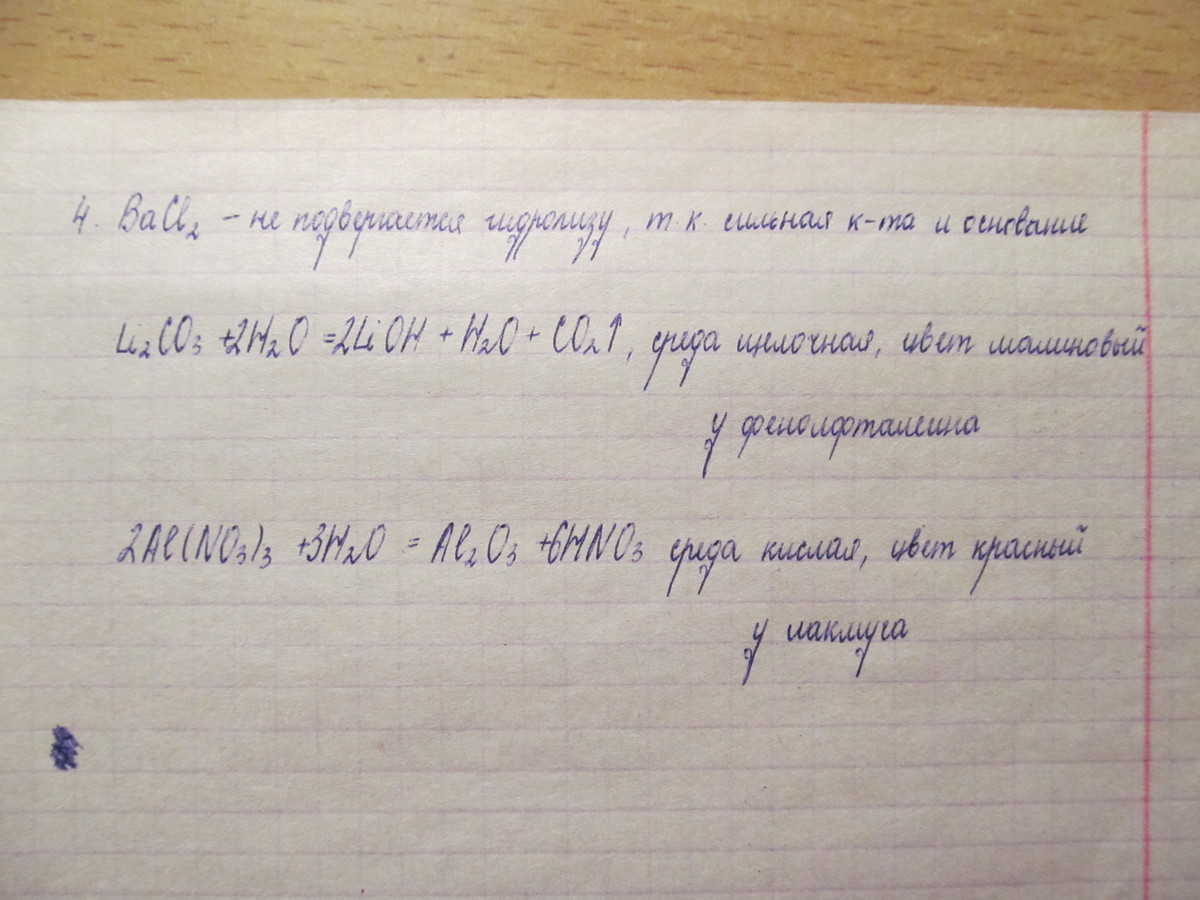 4. BaCl₂ – не подвергается гидролизу, т.к. сильная к-та и основание
Li₂CO₃ + 2H₂O = 2LiOH + H₂O + CO₂↑, среда щелочная, цвет малиновый
у фенолфталеина
2Al(NO₃)₃ + 3H₂O = Al₂O₃ + 6HNO₃ среда кислая, цвет красный
у лакмуса